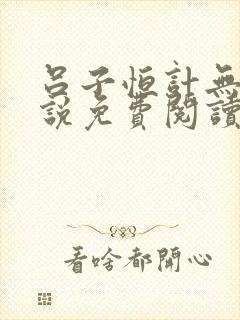 呂子恒計無
說免費閱讀
看啥都開心